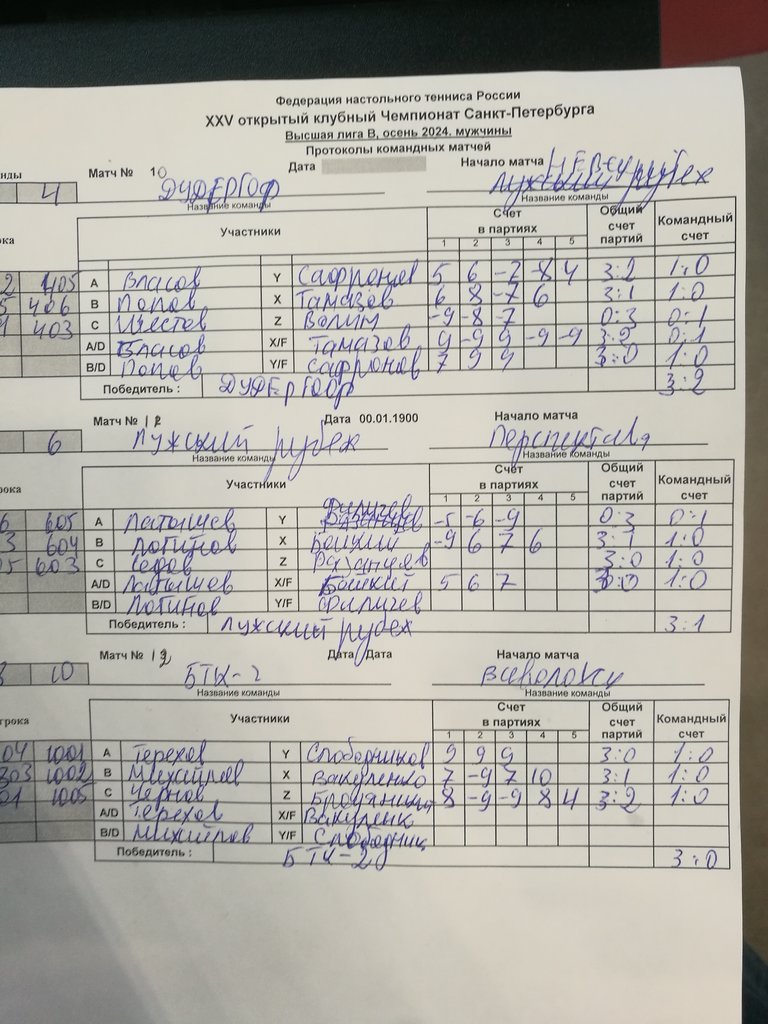 Федерация настольного тенниса России
XXV открытый клубный Чемпионат Санкт-Петербурга
Высшая лига В, осень 2024, мужчины
Протоколы командных матчей
нды Матч № 10 Дата Начало матча
4 ДУДЕРГОФ рубеж
Название команды Название команды
рока Участники Счет в партиях Общий счет партий Командный счет
1 2 3 4 5
2 405 A Власов Y Сафронов 5 6 -7 -8 4 3:2 1:0
5 406 B Попов X Тамазов 6 8 -7 6 3:1 1:0
403 C Шестов Z Волин -9 -8 -7 0:3 0:1
A/D Власов X/F Тамазов 9 -9 9 -9 -9 0:1
B/D Попов Y/F Сафронов 7 9 9 3:0 1:0
Победитель : ДУДЕРГОФ 3:2
Матч № 12 Дата 00.01.1900 Начало матча
6 Лужский рубеж Перспектива
Название команды Название команды
рока Участники Счет в партиях Общий счет партий Командный счет
1 2 3 4 5
6 605 A Латышев Y Филичев -5 -6 -9 0:3 0:1
3 604 B Логинов X -9 6 7 6 3:1 1:0
5 603 C Z 3:0 1:0
A/D Латышев X/F 5 6 7 3:0 1:0
B/D Логинов Y/F Филичев
Победитель : Лужский рубеж 3:1
Матч № Дата Дата Начало матча
10 БТК-2
Название команды Название команды
грока Участники Счет в партиях Общий счет партий Командный счет
1 2 3 4 5
04 1001 A Терехов Y Слободчиков 9 9 9 3:0 1:0
303 1002 B Михайлов X Вакуленко 7 -9 7 10 3:1 1:0
01 1005 C Чернов Z 8 -9 -9 8 4 3:2 1:0
A/D Терехов X/F Вакуленк
B/D Михайлов Y/F Слободчик
Победитель : БТК-2 3:0